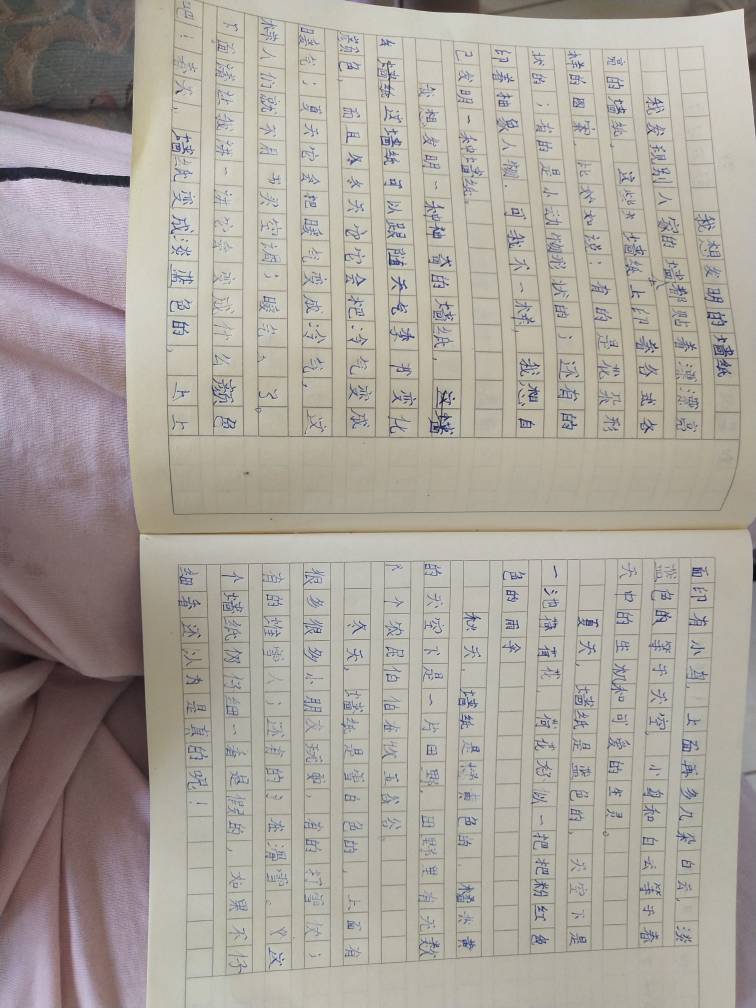 我想发明的墙纸
我发现别人家的墙都贴着漂漂亮
亮的墙纸，这些墙纸上印着各式各
样的图案，比如说：有的是花朵形
状的；有的是小动物形状的；还有的
印着抽象人物．可我不一样，我想自
己发明一种墙纸．
我想发明一种神奇的墙纸，这墙
纸这墙纸可以跟随天气季节变化
颜色，而且冬天它它会把冷气变成
暖气；夏天它会把暖气变成冷气，这
样人们就不用买空调；暖气、了。
下面请让我讲一讲它会变成什么颜色
吧！春天，墙纸变成淡蓝色的，上上
面印有小鸟，上面再多几朵白云，淡
蓝色的等于天空，小鸟和白云等于春
天中的生机和可爱的生灵。
夏天，墙纸是蓝色的，天空下是
一池荷花，荷花好似一把把粉红色
色的雨伞
秋天，墙纸是橙黄色的，橙黄
的天空下是一片田野，田野里有无数
个农民伯伯在收五谷。
冬天，墙纸是雪白色的，上面有
很多很多小朋友玩耍，有的打雪仗；
有的堆雪人；还有的在滑雪。这
个墙纸仔仔细一看是假的，如果不仔
细看还认为是真的呢！